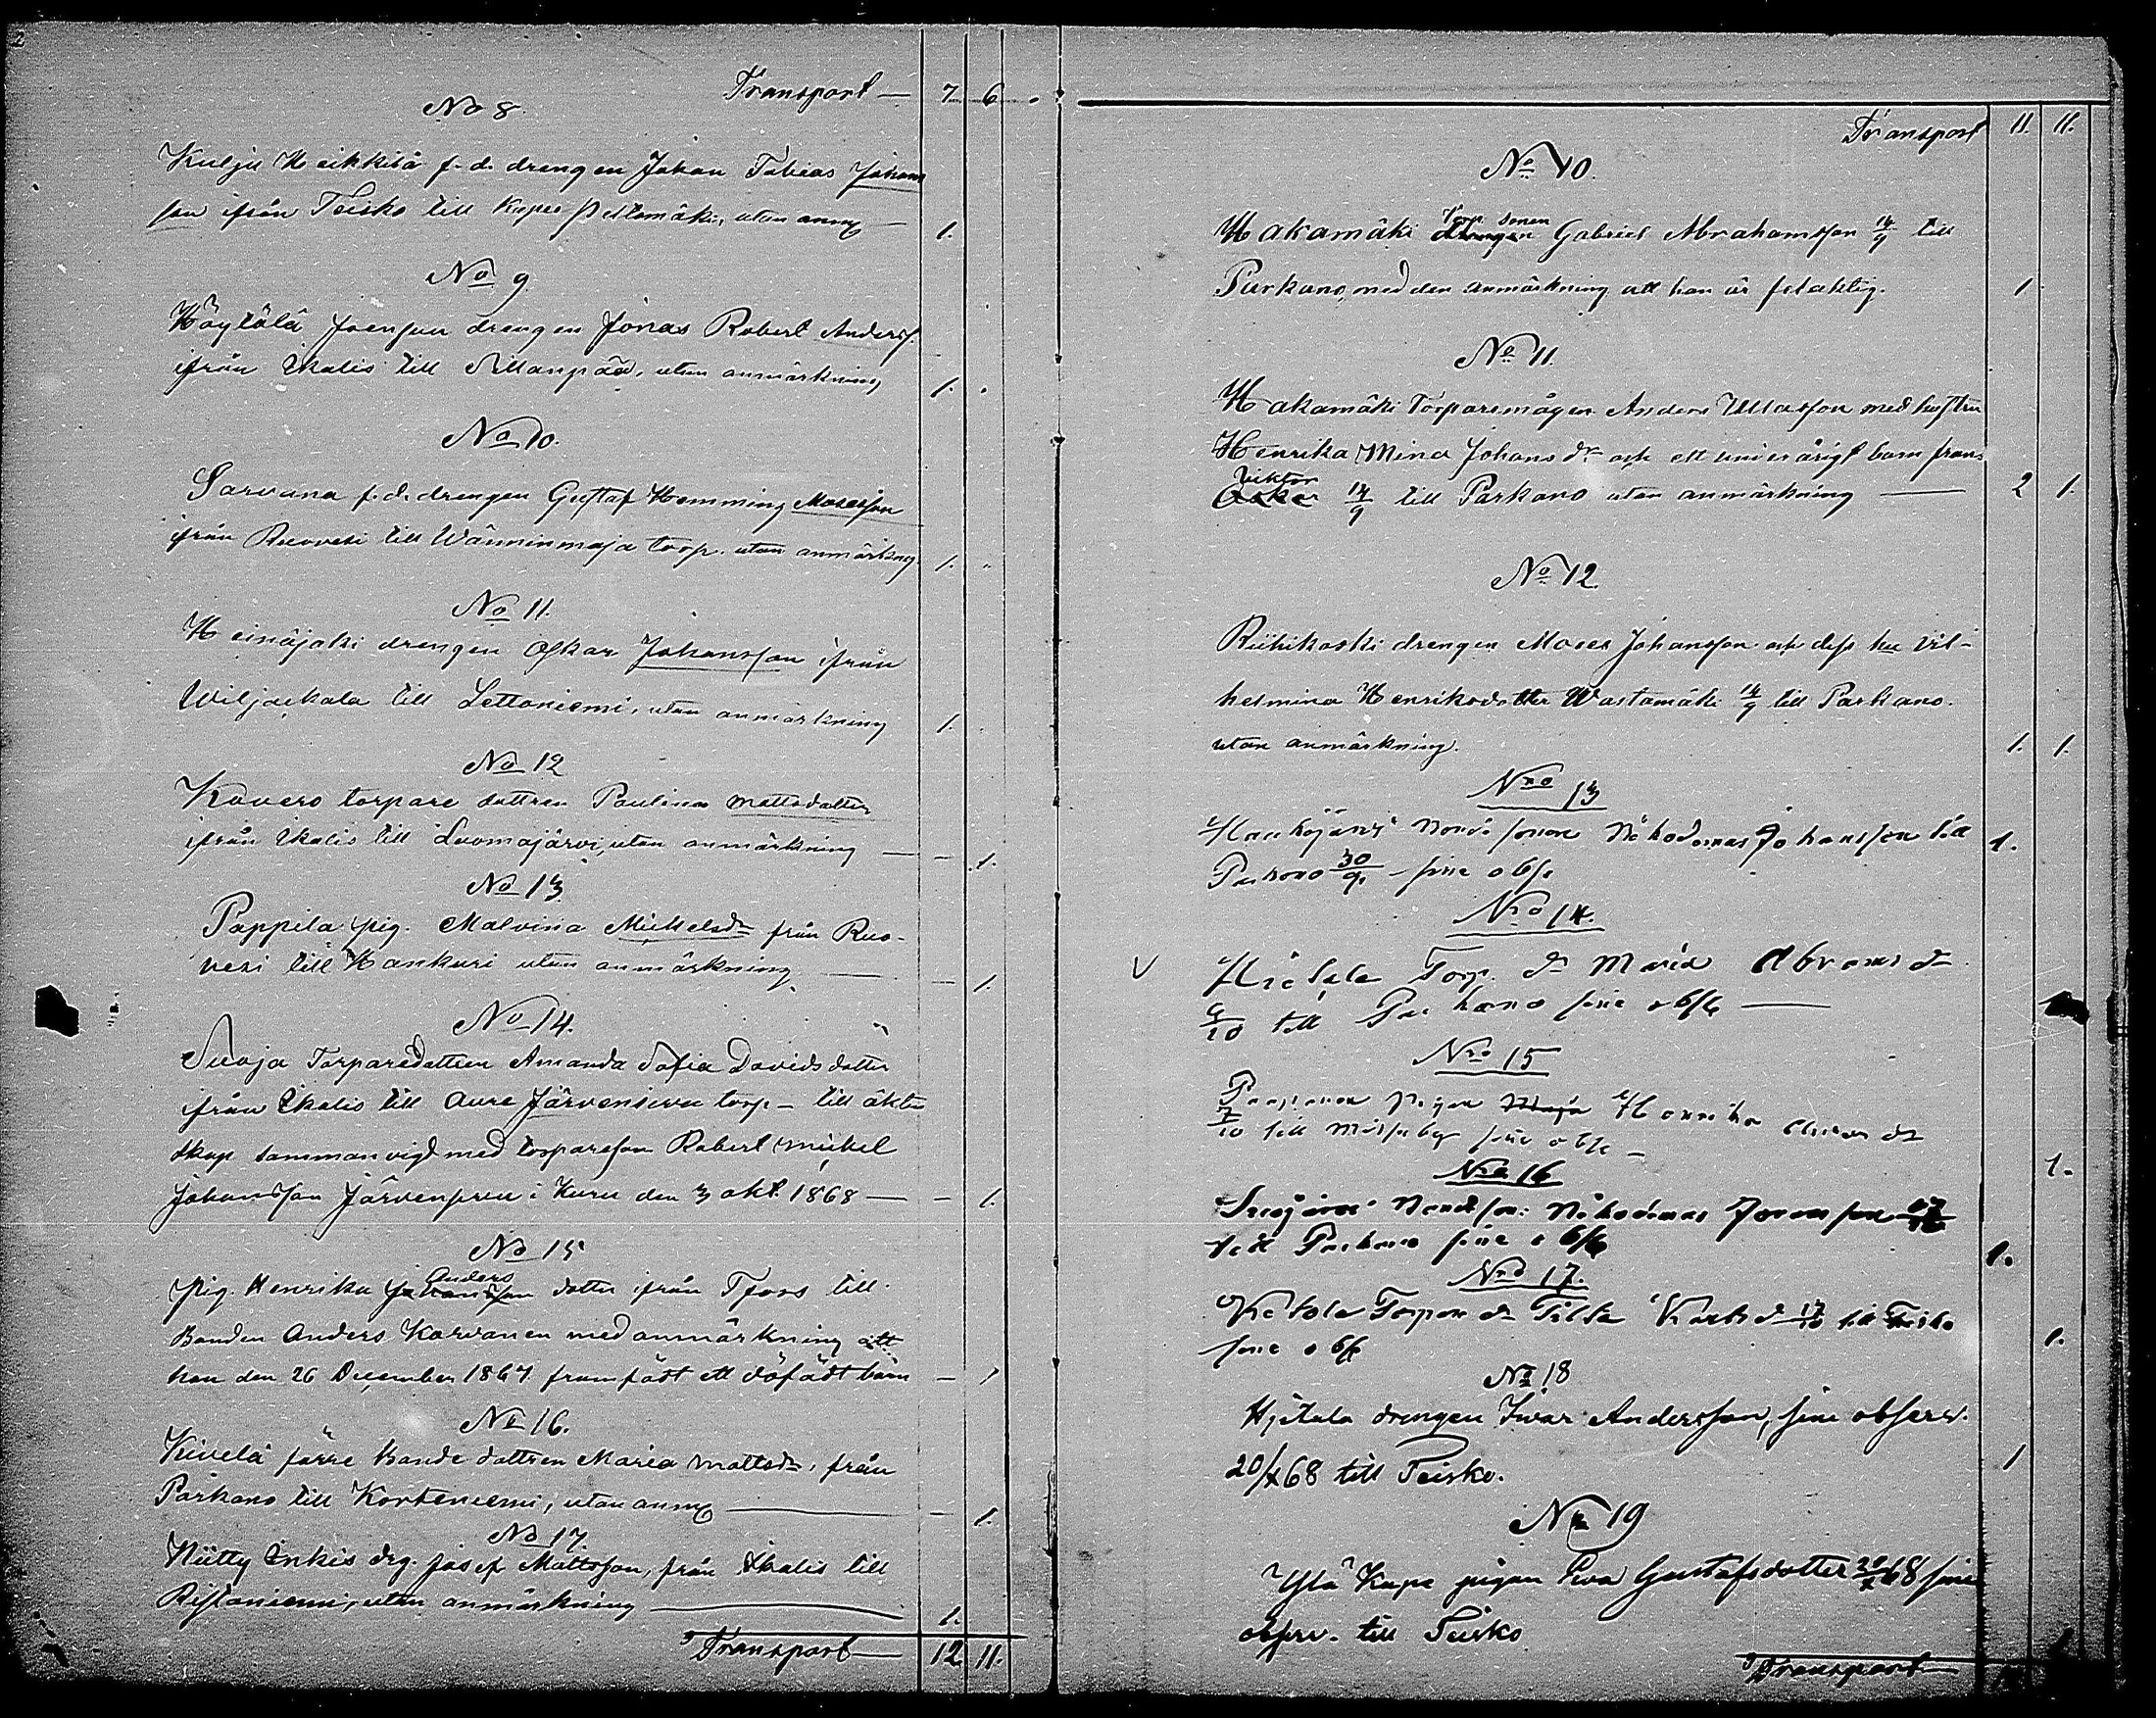 2
Transport — 7. 6.
No 8.
Kulju Heikkilä f.d. drengen Johan Tobias Johans
son ifrån Teisko till Keipes Peltomäki, utan anmg — 1.
No 9
Höytölä Joensuu drengen Jonas Robert Anderss.
ifrån Ikalis till Sillanpää, utan anmärkning 1.
No 10.
Sarvana f.d. drengen Gustaf Hemming Mosesson
ifrån Ruovesi till Wänninmaja torp. utan anmärkng 1.
No 11.
Heinäjoki drengen Oskar Johansson ifrån
Wiljackala till Lettoniemi, utan anmärkning 1.
No 12
Kovero torpare dottren Paulina Mattsdotter
ifrån Ikalis till Luomajärvi, utan anmärkning — — 1.
No 13
Pappila pig. Malvina Mickelsdr från Ruo-
vesi till Hankuri utan anmärkning — — 1.
No 14.
Suoja Torparedottren Amanda Sofia Davidsdotter
ifrån Ikalis till Aure Järvensivu torp — till äkten
skap sammanvigd med torpareson Robert Mickel
Johansson Järvenpern i Kuru den 3 okt. 1868 — — 1.
No 15
Pig. Henrika Johansson Anders dotter ifrån Tfors till
Bonden Anders Karvanen med anmärkning att
hon den 26 December 1867 framfödt ett dödfödt barn — 1
No 16.
Kivelä förre Bonde dottren Maria Mattsdr, från
Parkano till Korteniemi, utan anmg — — 1.
No 17.
Niitty Inkis drg. Josef Mattsson, från Ikalis till
Ristaniemi, utan anmärkning — 1.
Transport — 12 11.
Transport 11. 11.
No 10.
Hakamäki drengen Torp. sonen Gabriel Abrahamsson 14/9 till
Parkano, med den anmärkning att han är felaktig. 1
No 11.
Hakamäki Torparemågen Anders Ullasson med hustru
Henrika Mina Johansdr och ett underårigt barn Frans
Oskar Viktor 14/9 till Parkano utan anmärkning — 2 1.
No 12.
Riihikoski drengen Moses Johansson och dess hu Vil-
helmina Henriksdotter Wastamäki 14/9 till Parkano.
utan anmärkning. 1. 1.
Nro 13
Haukojärvi Bonde sonen Nikodemus Johansson till 1.
30/9 — sine obs.
Nro 14.
V Hietala Torp. dr Maria Abramsdr
6/10 till Parkano sine obs. —
Nro 15
pigan Maja Henrika
7/10 till by sine obs. —
1.
Nro 16
Bondeson: Nikodemus Jonasson 17/10
till Parkano sine obs. 1.
Nro 17.
Torpare dr Karlsdr 17/10 till Teisko
sine obs. 1.
No 18
Hjetala drengen Iwar Andersson, sine observ.
20/X 68 till Teisko. 1
No 19
Ylä Keipe pigan Eva Gustafsdotter 20/X 68 sine
observ. till Teisko
Transport —